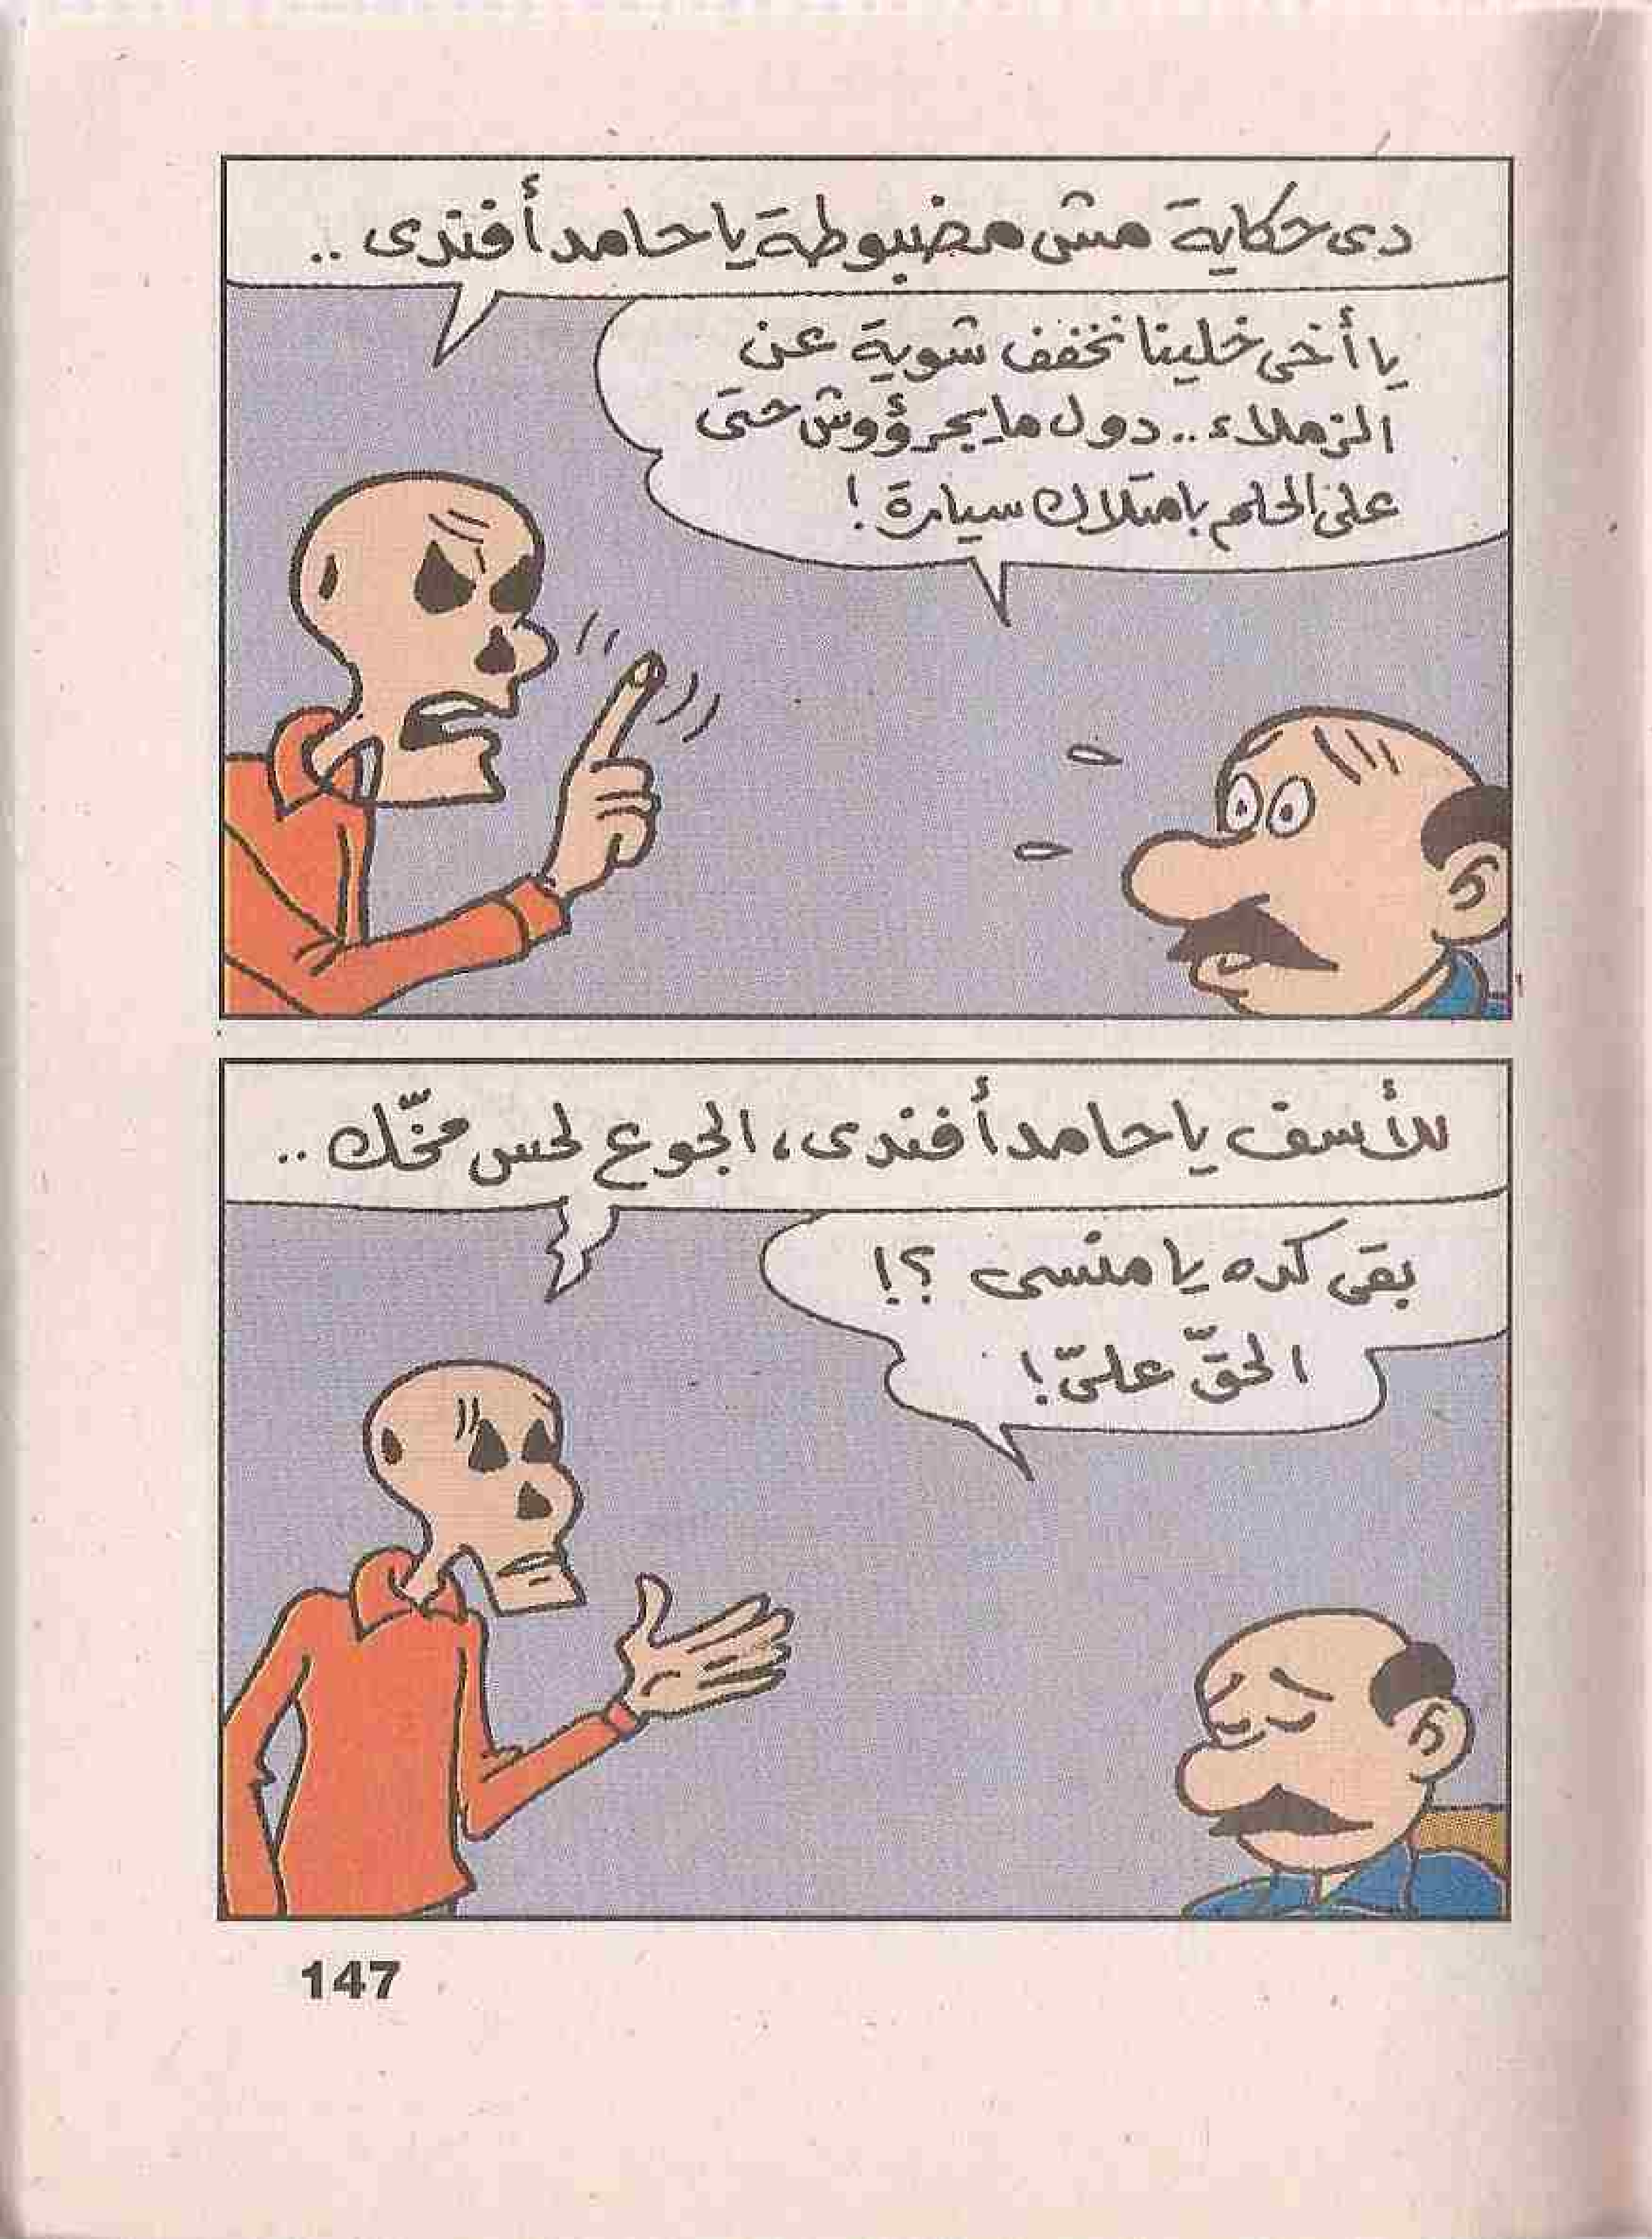 دى حكاية مش مضبوطة يا حامد أفندى ..
يا أخى خلينا نخفف شوية عن
الزملاء .. دول ما يجرؤوش حتى
على الحلم بامتلاك سيارة !
للأسف يا حامد أفندى، الجوع لحس مخّك ..
بقى كده يا منسى ؟!
الحقّ علىّ !
147